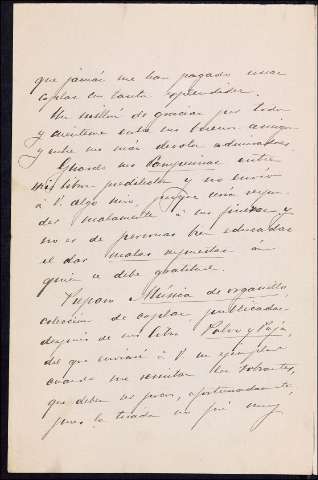 que jamás me han pagado unas
coplas con tanta esplendidez.
Un millón de gracias por todo
y cuénteme entre sus buenos amigos
y entre sus más devotos admiradores.
Guardo sus Banjuinas entre
mis libros predilectos y no envío
á V. algo mío, porque sería responder
malamente á sus finezas y
no es de personas bien educadas
el dar malas respuestas á
quien se debe gratitud.
Preparo Música de organillo,
colección de coplas publicadas
después de mi libro Polvo y Paja,
del que enviaré á V. un ejemplar
cuando me remitan los sobrantes,
que deben ser pocos, afortunadamente,
pues la tirada no fué muy